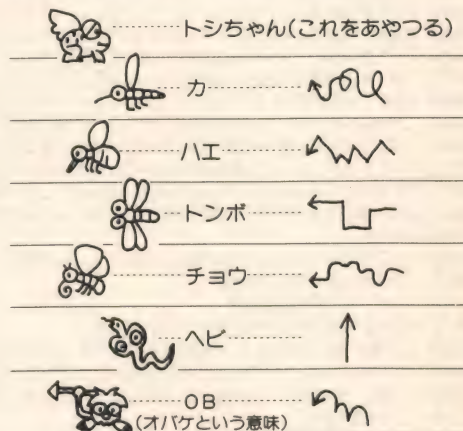 トシちゃん(これをあやつる)
カ
ハエ
トンボ
チョウ
ヘビ
OB
(オバケという意味)